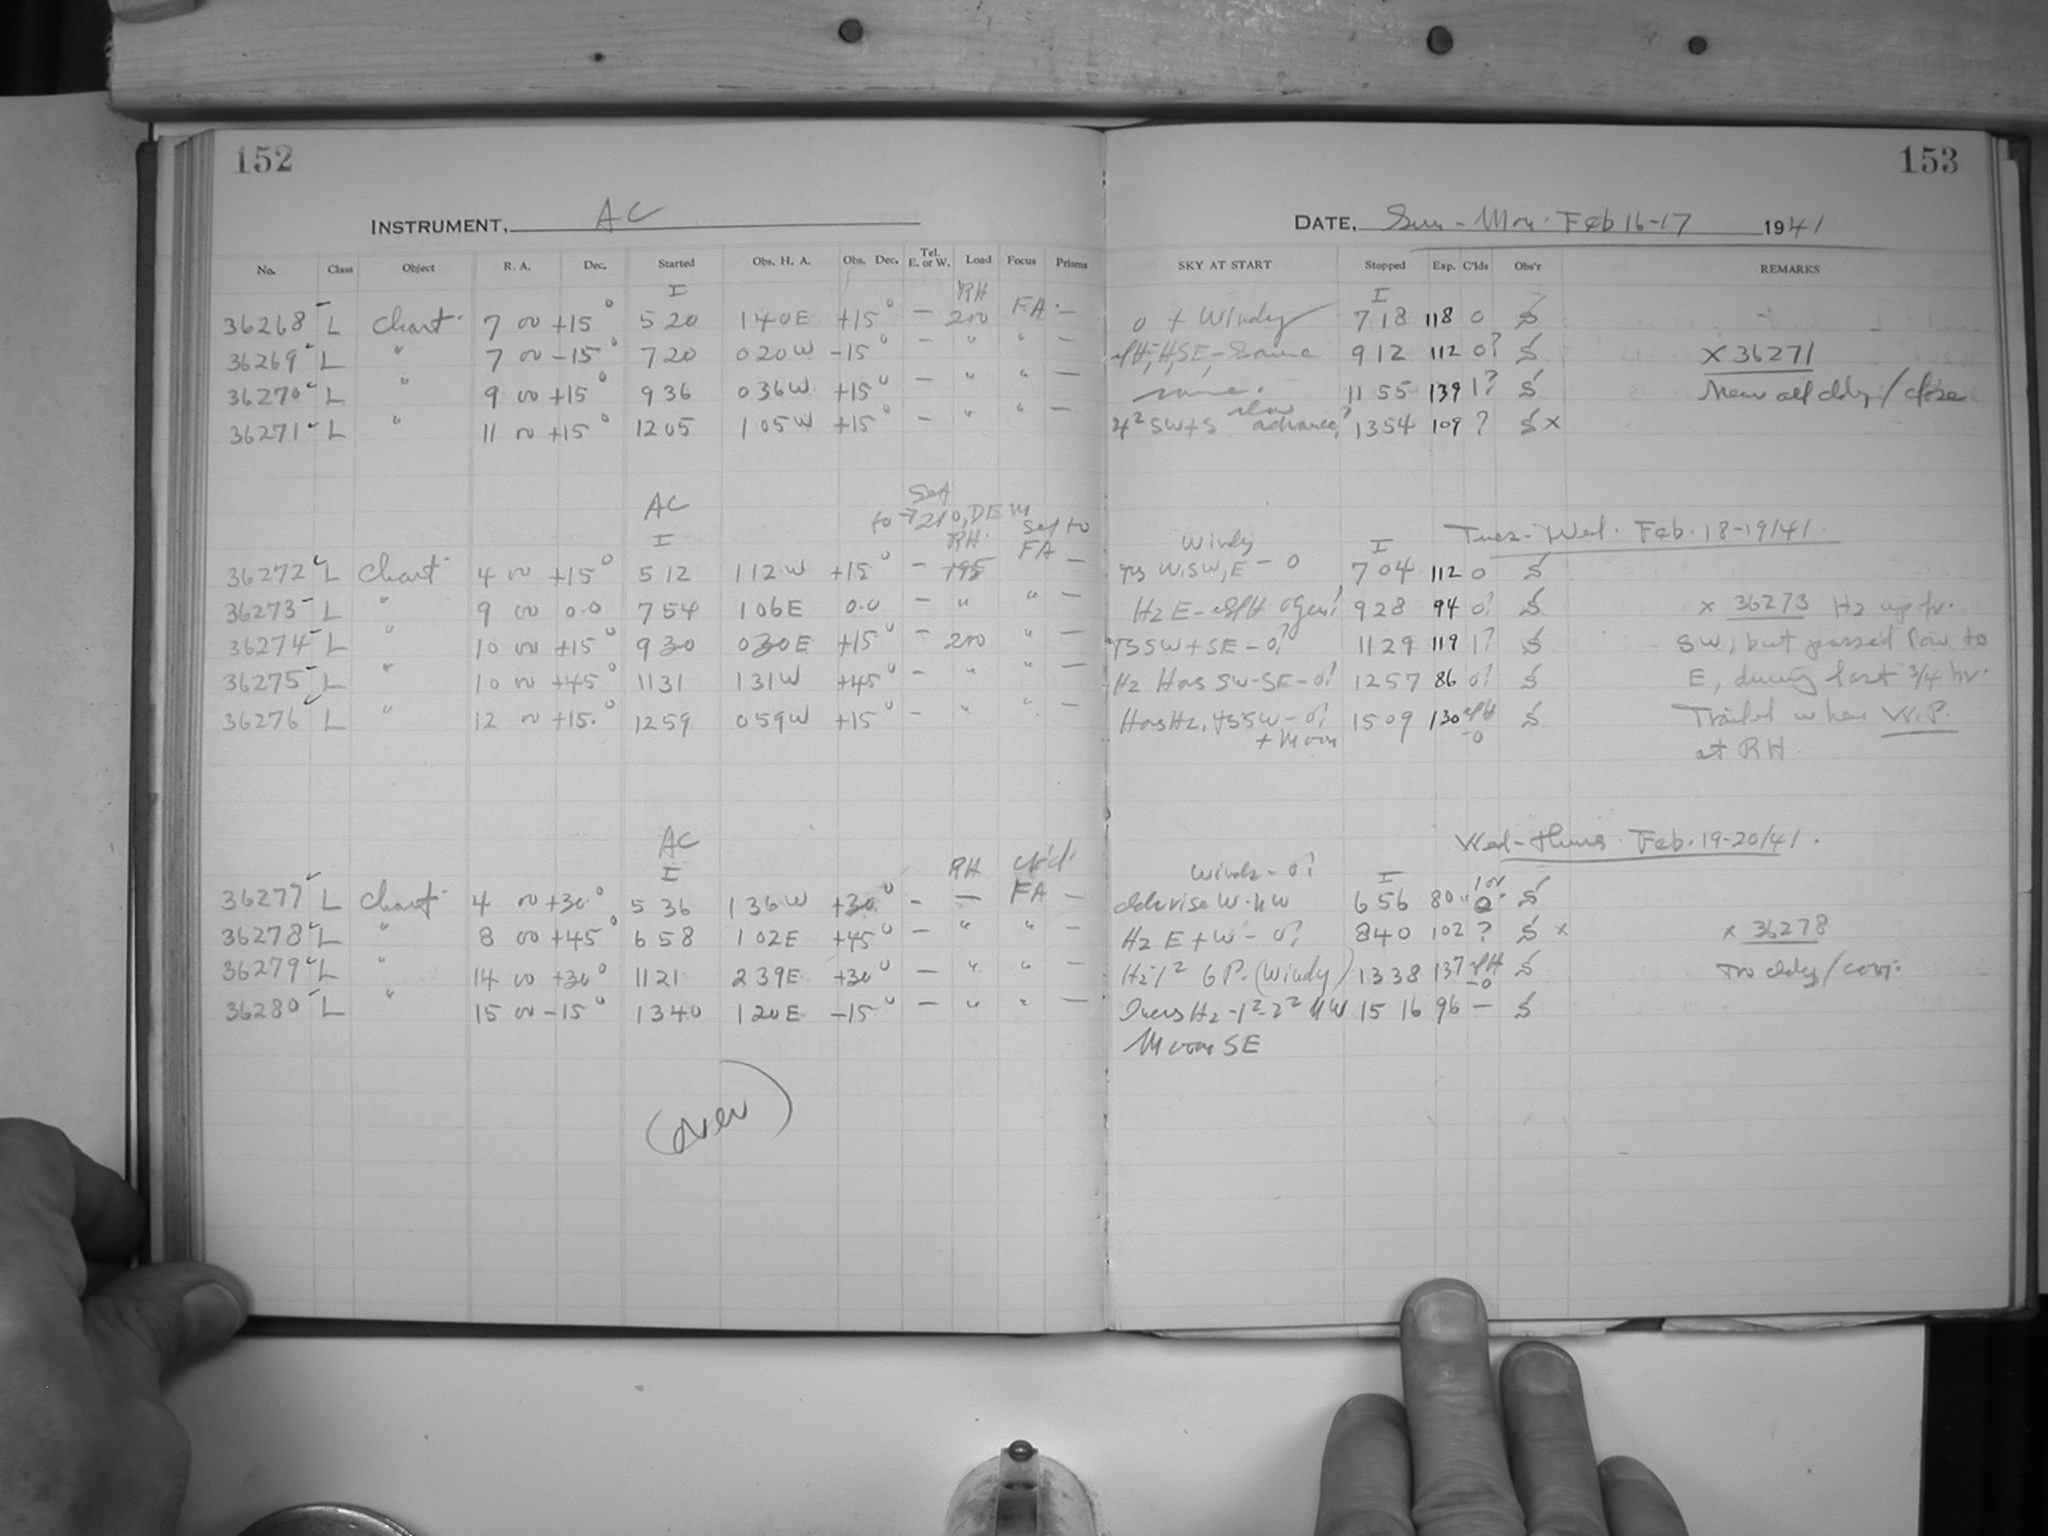 152
153
INSTRUMENT, AC
DATE, Sun - Mon. Feb 16-17 1941
No. Class Object R. A. Dec. Started Obs. H. A. Obs. Dec. Tel. E. or W. Load Focus Prisms SKY AT START Stopped Exp. C'lds Obs'r REMARKS
I RH I
36268 L Chart 7 00 +15° 5 20 1 40 E +15° — 200 FA — 0 + Windy 7 18 118 0 S
36269 L " 7 00 -15° 7 20 0 20 W -15° — " " — 9 12 112 0? S X 36271
36270 L " 9 00 +15° 9 36 0 36 W +15° — " " — same. 11 55 139 1? S Near all cldy / close
36271 L " 11 00 +15° 12 05 1 05 W +15° — " " — 4² SW + S slow advance? 13 54 109 ? S x
AC Set to → 210, DEM
Tues - Wed. Feb. 18-19/41.
I RH. Set to FA Windy I
36272 L Chart 4 00 +15° 5 12 1 12 W +15° — 195 — W, SW, E - 0 7 04 112 0 S
36273 L " 9 00 0.0 7 54 1 06 E 0.0 — " " — H2 E - 9 28 94 0? S x 36273 H2 up fr.
36274 L " 10 00 +15° 9 30 0 30 E +15° — 200 " — TS SW + SE - 0? 11 29 119 1? S SW, but passed low to
36275 L " 10 00 +45° 11 31 1 31 W +45° — " " — H2 Hors SW-SE - 0? 12 57 86 0? S E, during last 3/4 hr.
36276 L " 12 00 +15.° 12 59 0 59 W +15° — " " — Hors H2, TS SW - 0? 15 09 130 -0 S Trailed when W.P.
+ Moon at RH.
AC
Wed - Thurs Feb. 19-20/41.
I RH ch'd. Windy - 0? I
36277 L Chart 4 00 +30° 5 36 1 36 W +30° - — FA — W-NW 6 56 80 1 or 0 S
36278 L " 8 00 +45° 6 58 1 02 E +45° — " " — H2 E + W - 0? 8 40 102 ? S x x 36278
36279 L " 14 00 +30° 11 21 2 39 E +30° — " " — H2-1² GP. (Windy) 13 38 137 -0 S
36280 L " 15 00 -15° 13 40 1 20 E -15° — " " — H2 -1²-2² NW 15 16 96 — S
Moon SE
(over)